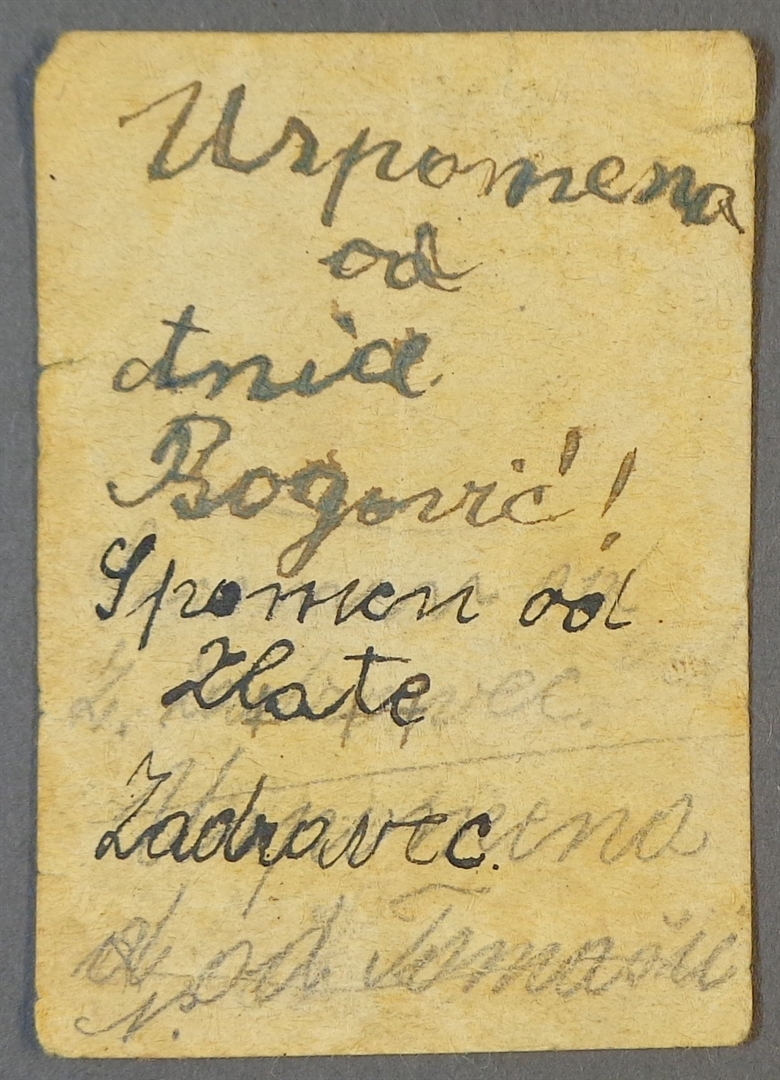 Uspomena
od
Anice
Bogović!
Spomen od
Zlate
Z. Zadravec.
Zadravec.
Uspomena
od Tomašić